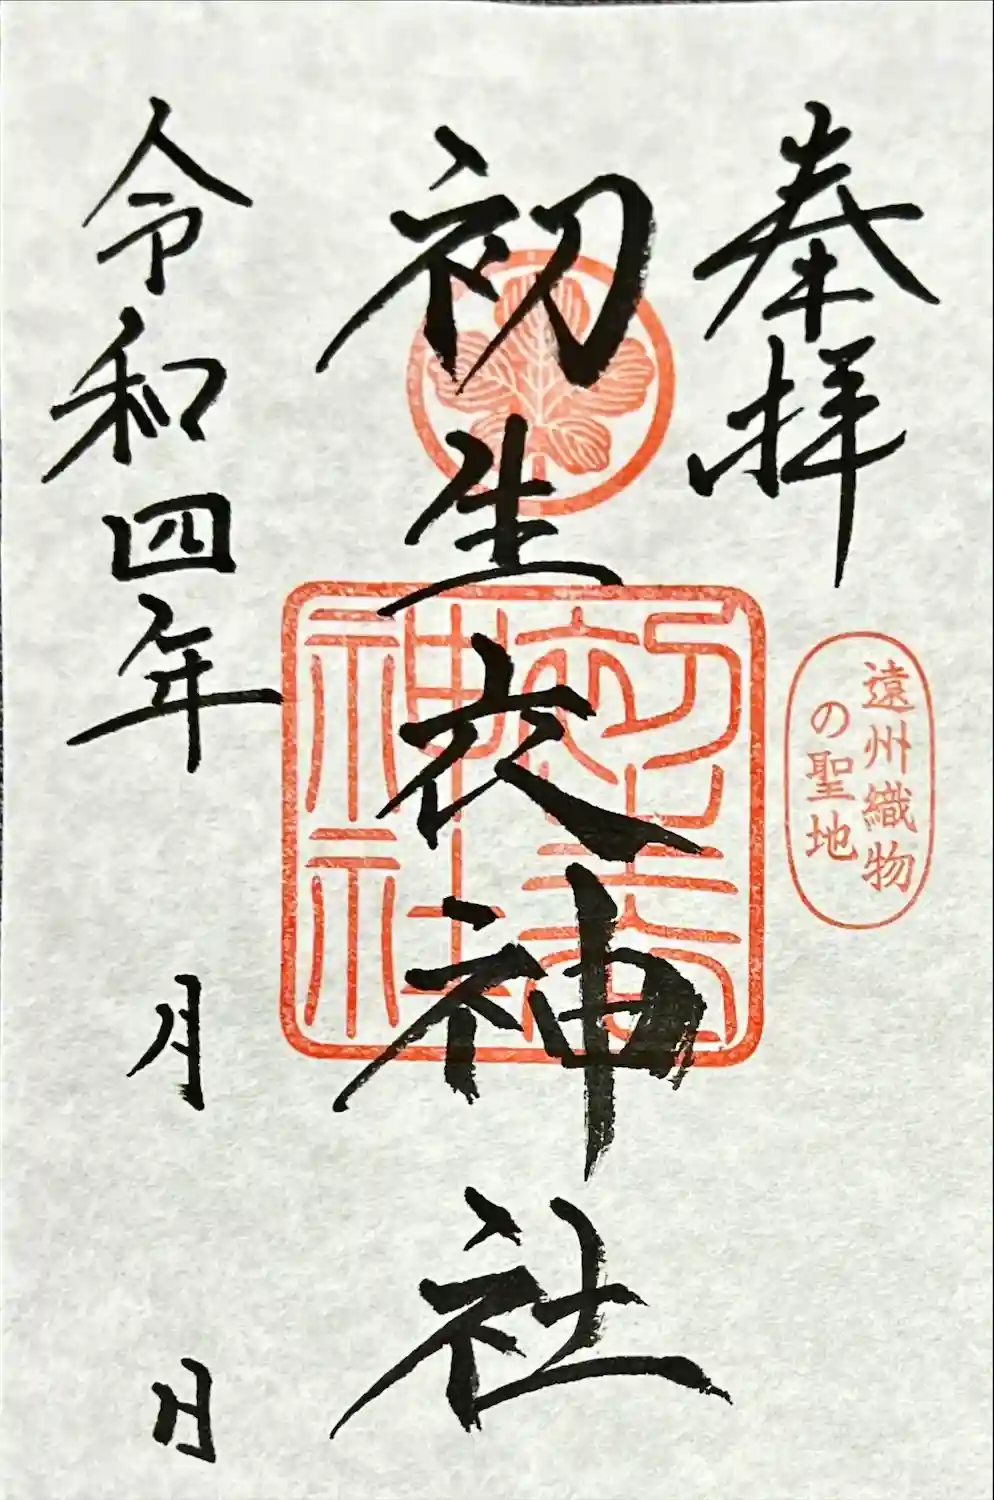 奉拝
遠州織物
の聖地
初生衣神社
初生衣
神社
令和四年 月 日